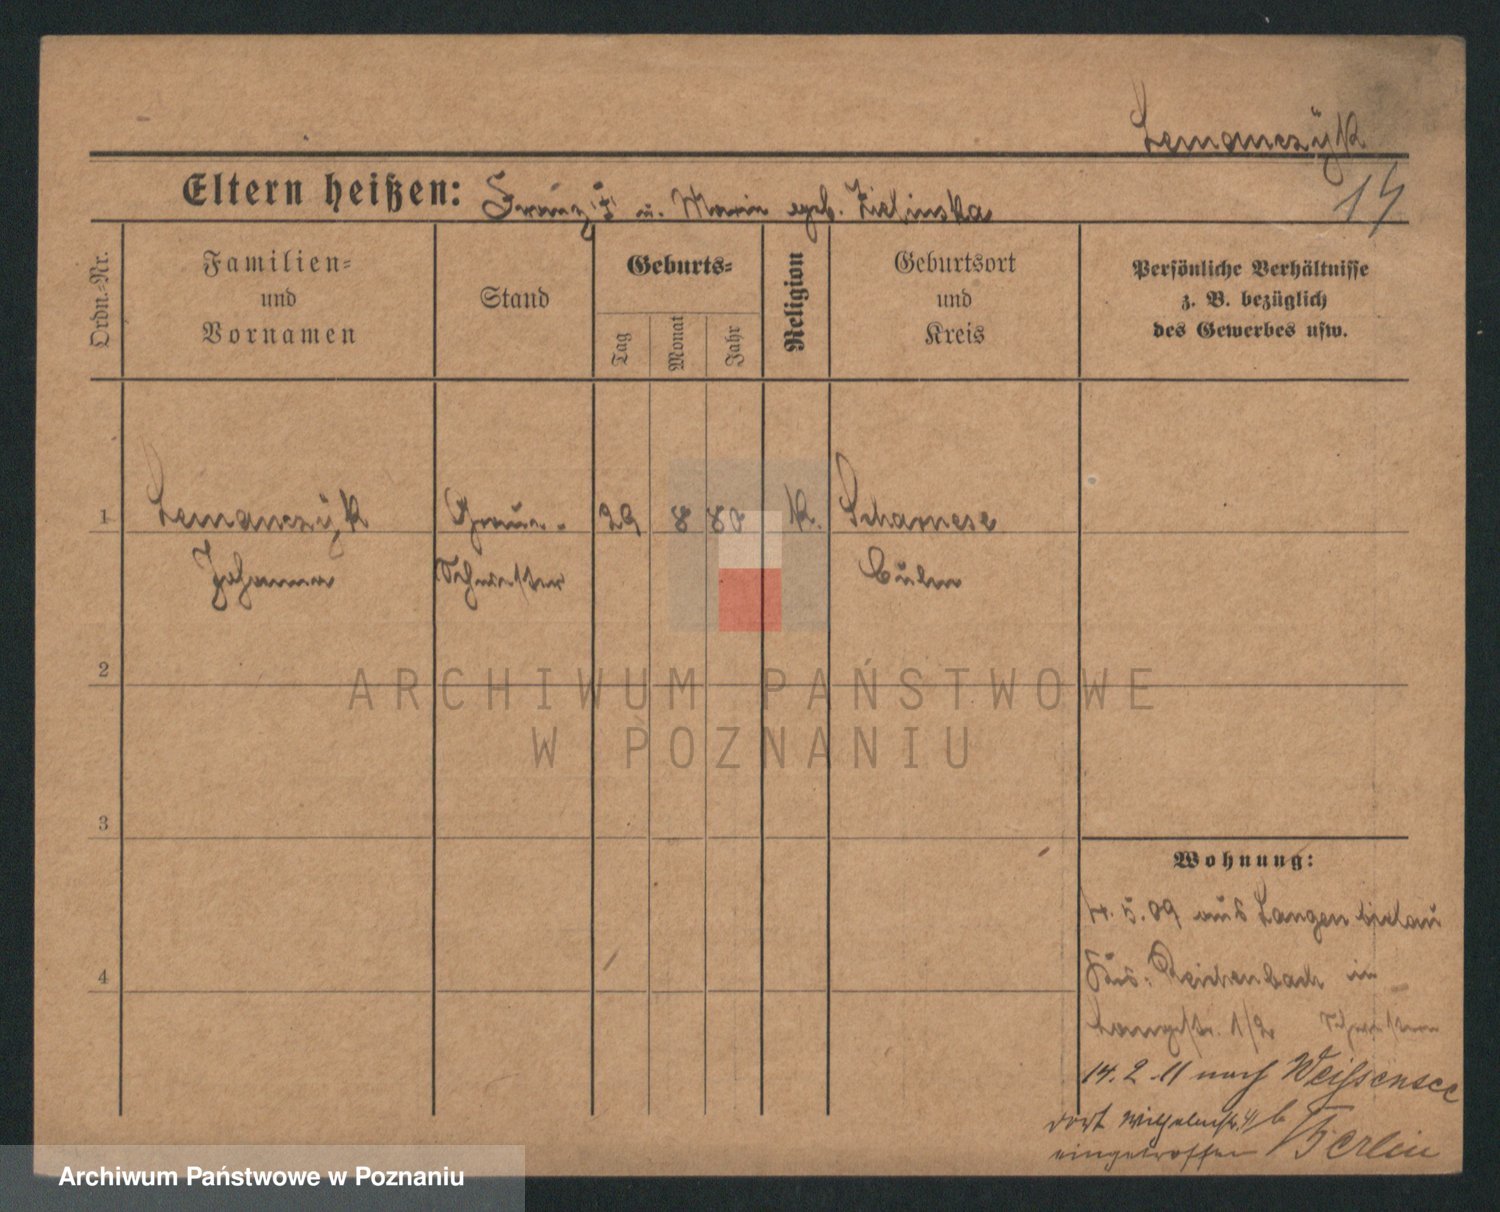 Lemanczÿk
14
Eltern heißen: Franz u. Marie geb. Zielinska
Ordn.-Nr.
Familien-
und
Vornamen
Stand
Geburts-
Tag
Monat
Jahr
Religion
Geburtsort
und
Kreis
Persönliche Verhältnisse
z. B. bezüglich
des Gewerbes usw.
1 Lemanczÿk Graue- 29 8 80 K. Scharnese
Johanna Schwester Culm
2
ARCHIWUM PAŃSTWOWE
W POZNANIU
3
Wohnung:
4. 5. 09 aus Langenbielau
Reichenbach in
4
Langestr. 1/2 Schwestern
14. 2. 11 nach Weißensee
dort Wilhelmstr. 4 b/Berlin
eingetroffen
Archiwum Państwowe w Poznaniu